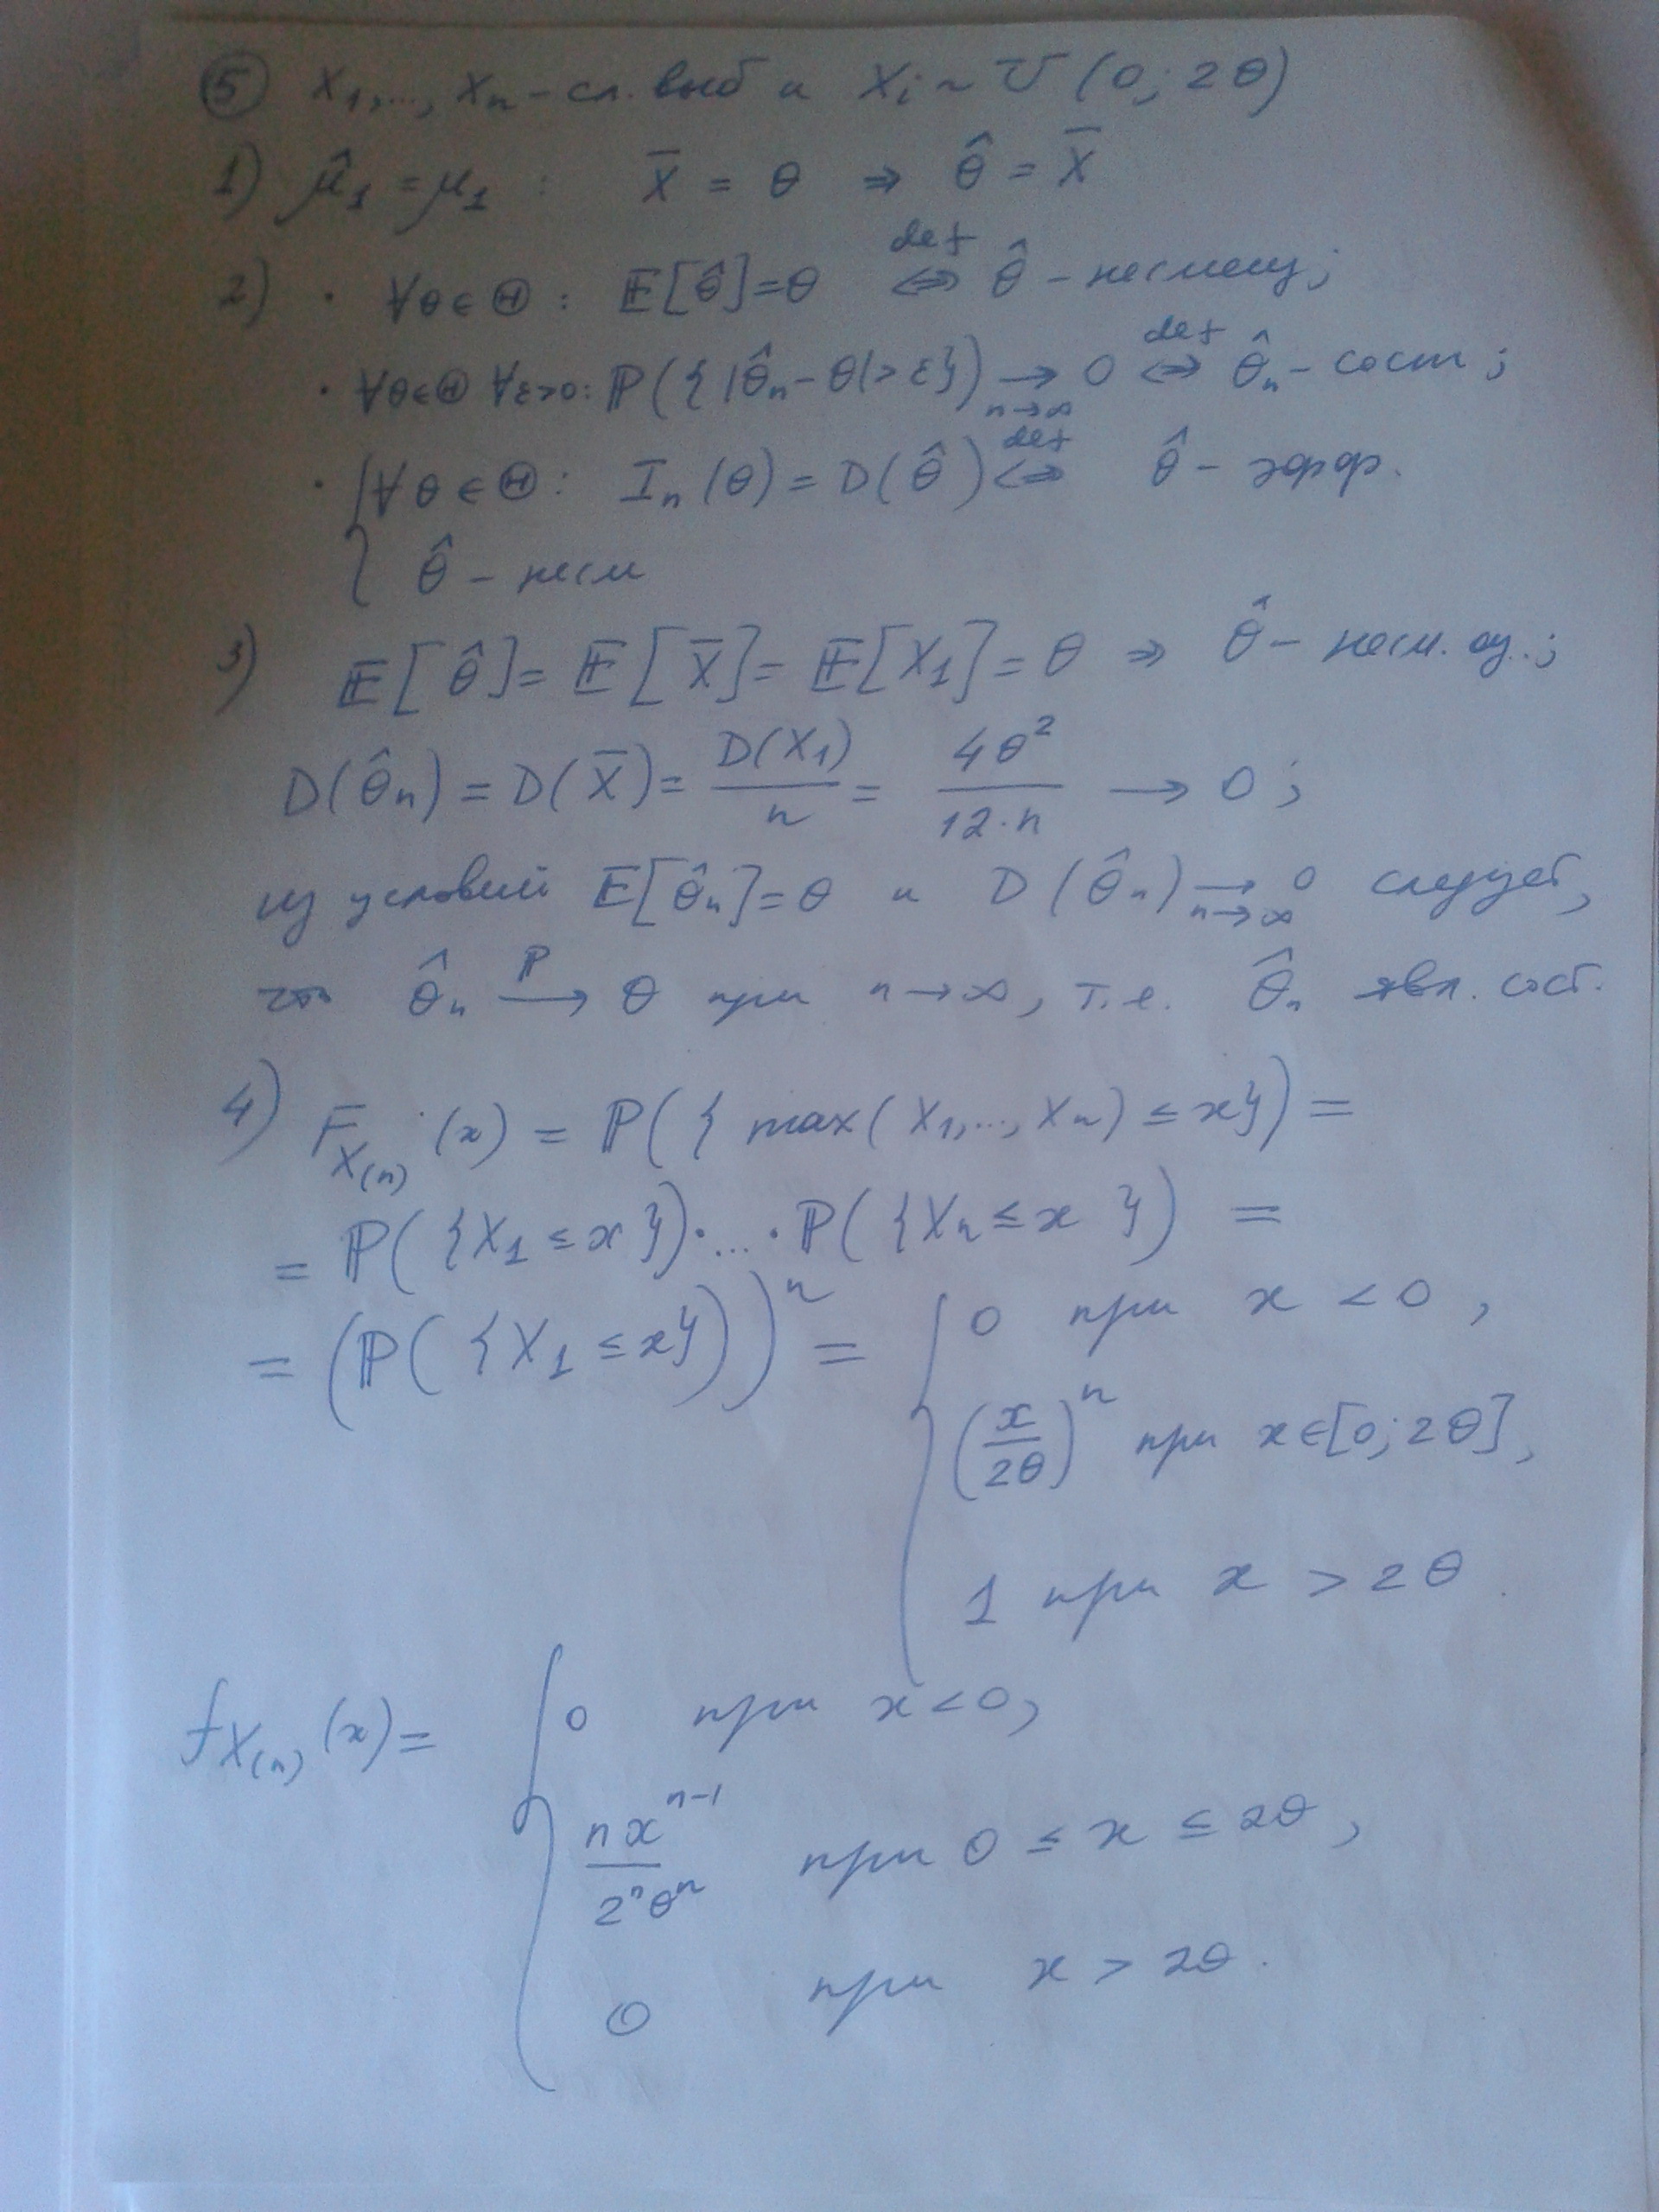 ⑤ X₁,..., Xₙ – сл. выб и Xᵢ ~ U (0; 2θ)
1) μ̂₁ = μ₁ : X̄ = θ ⇒ θ̂ = X̄
2) · ∀θ ∈ Θ : E[θ̂] = θ ⇔ (def) θ̂ – несмещ;
· ∀θ∈Θ ∀ε>0: P({|θ̂ₙ – θ| > ε}) → 0 (n→∞) ⇔ (def) θ̂ₙ – сост ;
· { ∀θ ∈ Θ : Iₙ(θ) = D(θ̂) ⇔ (def) θ̂ – эфф.
θ̂ – несм
3) E[θ̂] = E[X̄] = E[X₁] = θ ⇒ θ̂ – несм. оц.;
D(θ̂ₙ) = D(X̄) = D(X₁)/n = 4θ²/(12·n) → 0 ;
из условий E[θ̂ₙ] = θ и D(θ̂ₙ) → 0 (n→∞) следует,
что θ̂ₙ →(P) θ при n→∞, т.е. θ̂ₙ явл. сост.
4) F_{X₍ₙ₎}(x) = P({ max(X₁,..., Xₙ) ≤ x}) =
= P({X₁ ≤ x})·...·P({Xₙ ≤ x }) =
= (P({X₁ ≤ x}))ⁿ = { 0 при x < 0 ,
(x/2θ)ⁿ при x∈[0; 2θ],
1 при x > 2θ .
f_{X₍ₙ₎}(x) = { 0 при x < 0,
nxⁿ⁻¹/2ⁿθⁿ при 0 ≤ x ≤ 2θ ,
0 при x > 2θ .